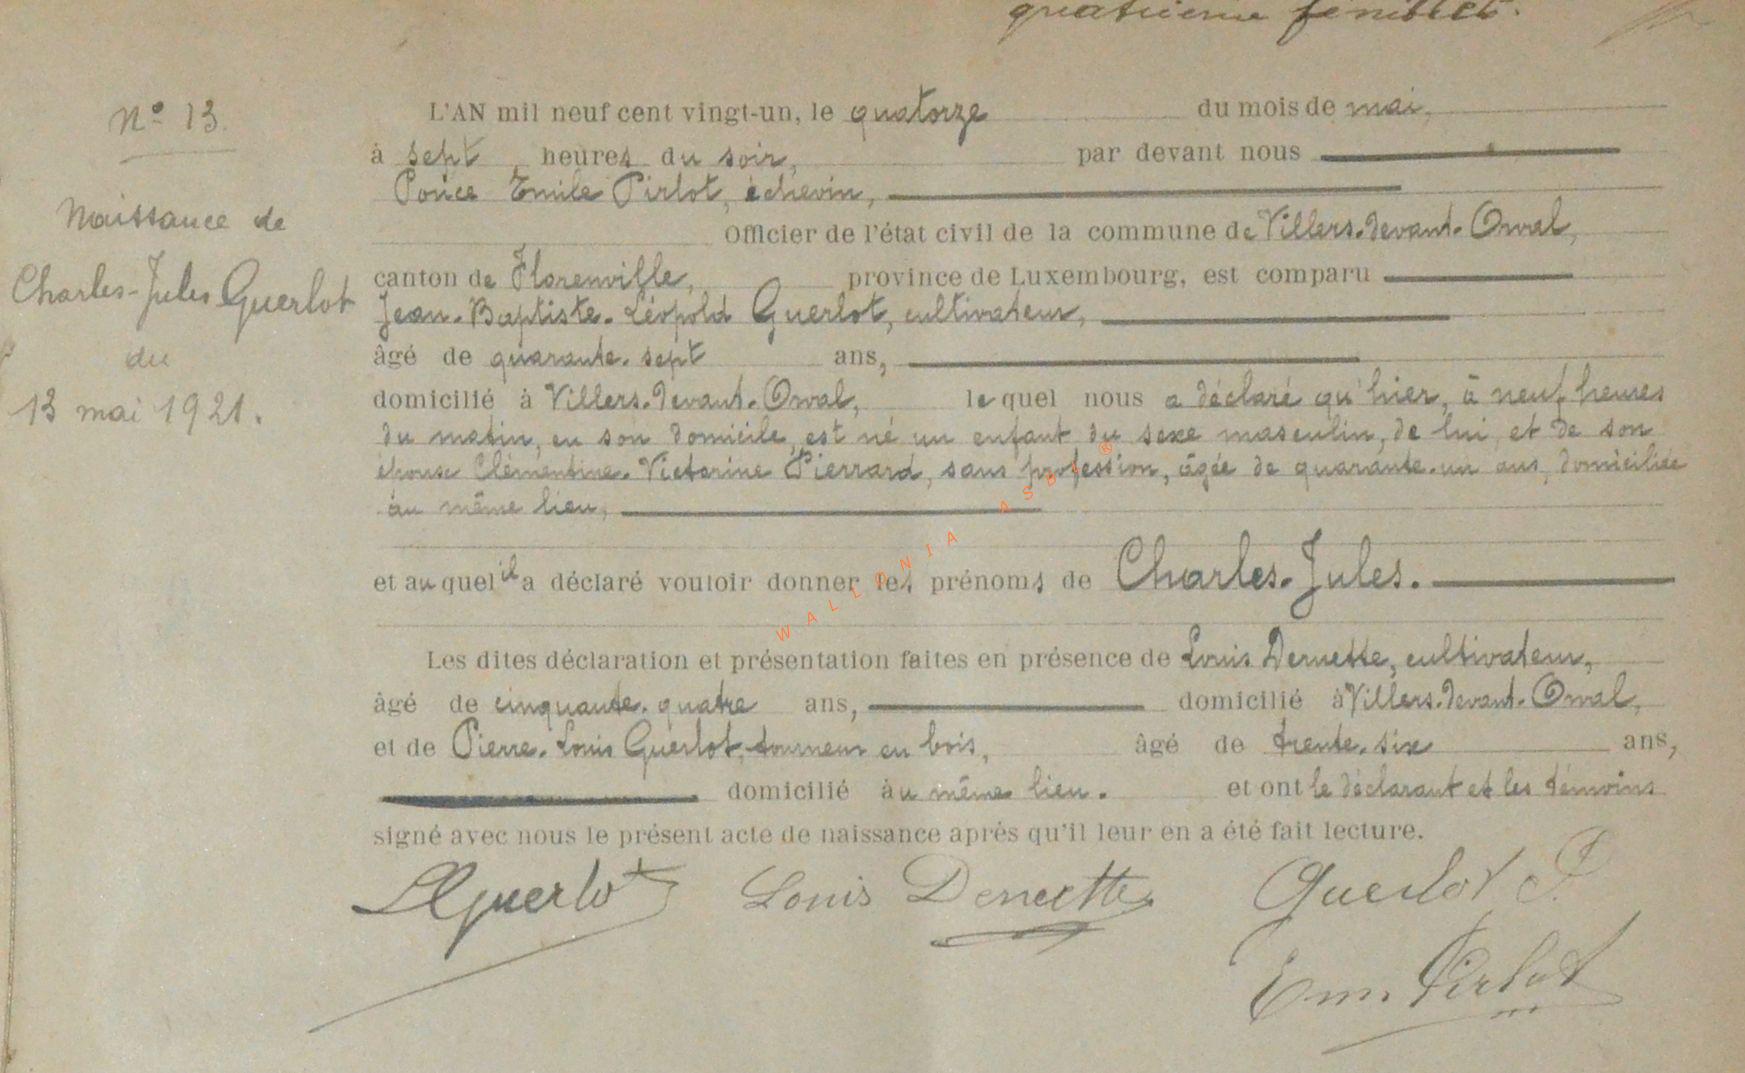 quatrième feuillet.
N° 13.
Naissance de
Charles-Jules Guerlot
du
13 mai 1921.
L'AN mil neuf cent vingt-un, le quatorze du mois de mai,
à sept heures du soir, par devant nous
Ponce Emile Pirlot, échevin,
Officier de l'état civil de la commune de Villers-devant-Orval,
canton de Florenville, province de Luxembourg, est comparu
Jean-Baptiste-Léopold Guerlot, cultivateur,
âgé de quarante-sept ans,
domicilié à Villers-devant-Orval, lequel nous a déclaré qu'hier, à neuf heures
du matin, en son domicile, est né un enfant du sexe masculin, de lui et de son
épouse Clémentine-Victorine Pierrard, sans profession, âgée de quarante-un ans, domiciliée
au même lieu,
et auquel il a déclaré vouloir donner les prénoms de Charles-Jules.
Les dites déclaration et présentation faites en présence de Louis Dernette, cultivateur,
âgé de cinquante-quatre ans, domicilié à Villers-devant-Orval,
et de Pierre-Louis Guerlot, tourneur en bois, âgé de trente-six ans,
domicilié au même lieu. et ont le déclarant et les témoins
signé avec nous le présent acte de naissance après qu'il leur en a été fait lecture.
LGuerlot Louis Dernette Guerlot P.
Em. Pirlot
WALLONIA ASBL ®